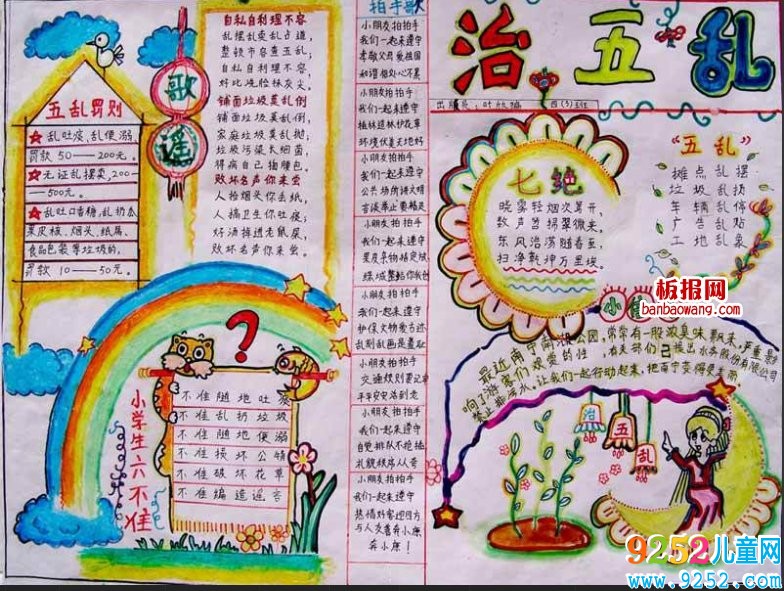 五乱罚则
乱吐痰、乱便溺、
罚款50——200元。
无证乱摆卖,200—
—500元。
乱吐口香糖,乱扔瓜
果皮核、烟头、纸屑、
食品包装等垃圾的,
罚款10—50元。
歌
谣
自私自利理不容
乱摆乱卖乱占道,
整顿市容查五乱;
自私自利理不容,
好比吃
铺面垃圾莫乱倒
铺面垃圾莫乱倒,
家庭垃圾莫乱抛;
垃圾污染长细菌,
得病自己掏腰包。
败坏名声你来当
人捡烟头你丢纸,
人搞卫生你吐痰;
好汤掉进老鼠屎,
败坏名声你来当。
小学生六不准
?
不准随地吐痰
不准乱扔垃圾
不准随地便溺
不准损坏公物
不准破坏花草
不准编造谣言
拍手歌
小朋友拍拍手
我们一起来遵守
孝敬父母爱祖国
和谐相处心不累
小朋友拍拍手
我们一起来遵守
植林造林护花草
环境优美天地好
小朋友拍拍手
我们一起来遵守
公共场所讲文明
言谈举止要端庄
小朋友拍拍手
我们一起来遵守
果皮杂物指定放
绿城整洁你我创
小朋友拍拍手
我们一起来遵守
护保文物爱古迹
乱刻乱画是羞耻
小朋友拍拍手
交通规则要记牢
平平安安活到老
小朋友拍拍手
我们一起来遵守
自觉排队不抢插
礼貌秩序从入夸
小朋友拍拍手
我们一起来遵守
热情好客迎四方
与人友善奔小康
奔小康!
治五乱
出版员:
四(5)班
七绝
晓雾轻烟次第开,
数声笛
东风浩荡随春至,
扫净乾坤万里埃。
“五乱”
摊点乱摆
垃圾乱扔
车辆乱停
广告乱贴
工地乱象
板报网
banbaowang.com
小
最近南宁南湖公园,常常有一股浓臭味飘来,严重影
响了游客们欢爱的性,有关部门已拨出水务股份有限公司
禁止排污水,让我们一起行动起来,把南宁变得更美丽
治
五
乱
9252儿童网
www.9252.com